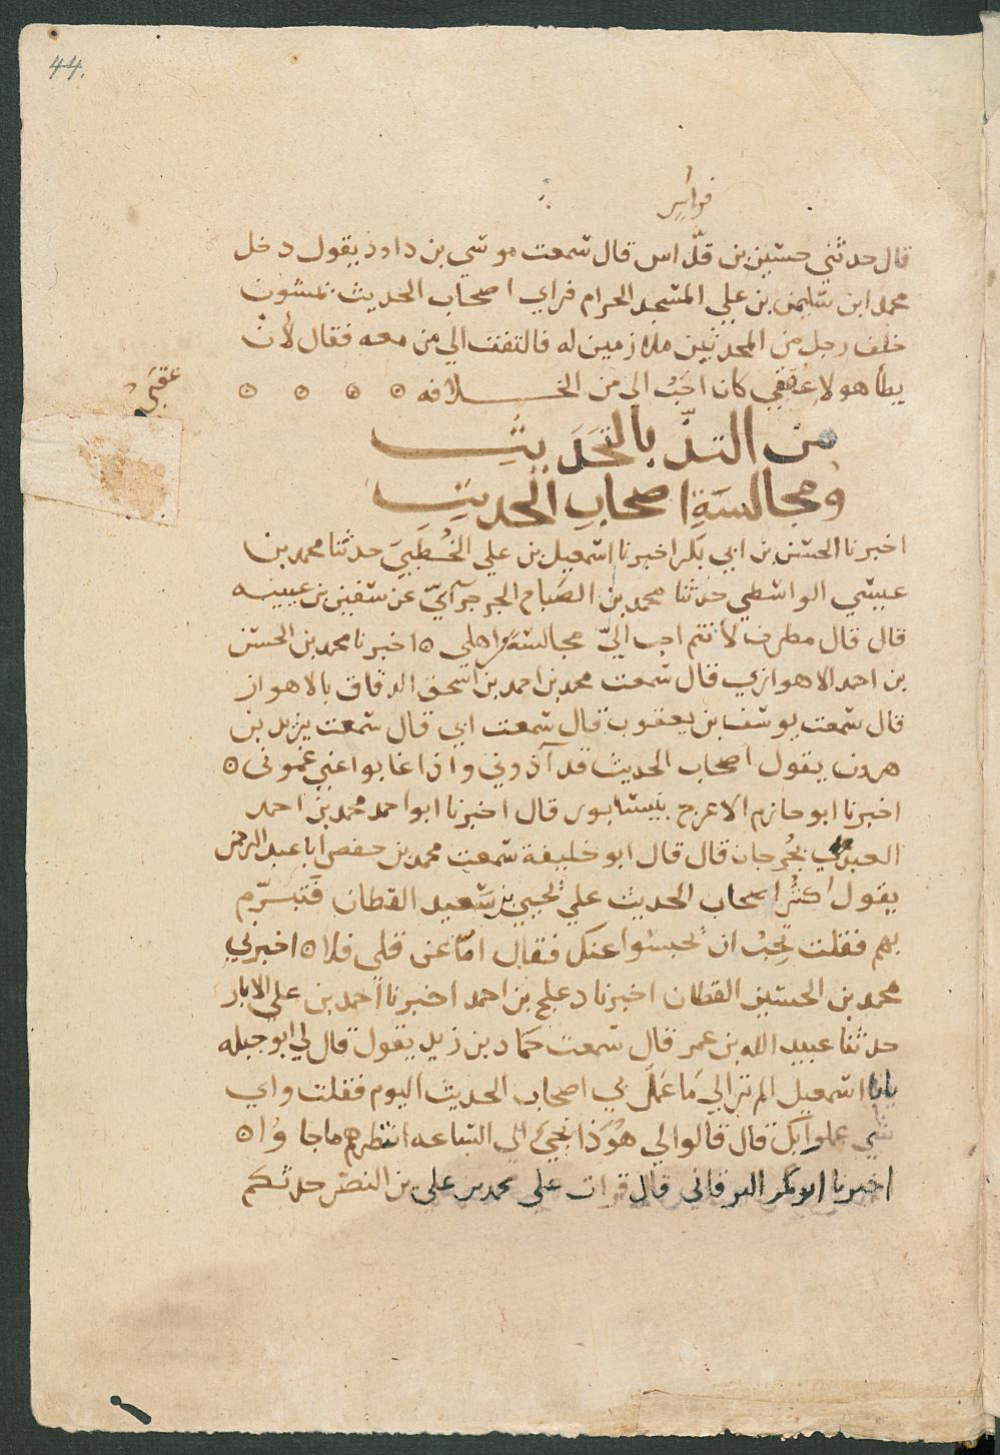 44.
قال حدثني حسين بن قلاس قال سمعت موسي بن داود يقول دخل
محمد ابن سليمن بن علي المسجد الحرام فراي اصحاب الحديث يمشون
خلف رجل من المحدثين ملازمين له فالتفت الي من معه فقال لأن
يطأ هولاء عقبي كان احب الي من الخلافه ٥ ٥ ٥ ٥
عقبي
من التذ بالتحديث
ومجالسة اصحاب الحديث
اخبرنا الحسن بن ابي بكر اخبرنا اسمعيل بن علي الخطبي حدثنا محمد بن
عيسي الواسطي حدثنا محمد بن الصباح الجرجرآيي عن سفين بن عيينه
قال قال مطرف لأنتم احب اليّ مجالسة من اهلي ٥ اخبرنا محمد بن الحسن
بن احمد الاهوازي قال سمعت محمد بن احمد بن اسحق الدقاق بالاهواز
قال سمعت يوسف بن يعقوب قال سمعت ابي قال سمعت يزيد بن
هرون يقول اصحاب الحديث قد آذوني واذا غابوا عني غموني ٥
اخبرنا ابو حازم الاعرج بنيسابور قال اخبرنا ابو احمد محمد بن احمد
العبدي بجُرجان قال قال ابو خليفة سمعت محمد بن حفص ابا عبد الرحمن
يقول اكثر اصحاب الحديث علي يحيي بن سعيد القطان فتبرّم
بهم فقلت تحب ان يحبسوا عنك فقال امّا عن قلي فلا ٥ اخبرني
محمد بن الحسين القطان اخبرنا دعلج بن احمد اخبرنا احمد بن علي الابار
حدثنا عبيد الله بن عمر قال سمعت حماد بن زيد يقول قال لي ابو جبله
يابا اسمعيل الم تر الي ما عمل بي اصحاب الحديث اليوم فقلت واي
شي عملوا بك قال قالوا لي هُوَذا نجيء الي الساعه انتظرهم ما جاوُا ٥
اخبرنا ابو بكر البرقاني قال قرات علي محمد بن علي بن النضر حدثكم